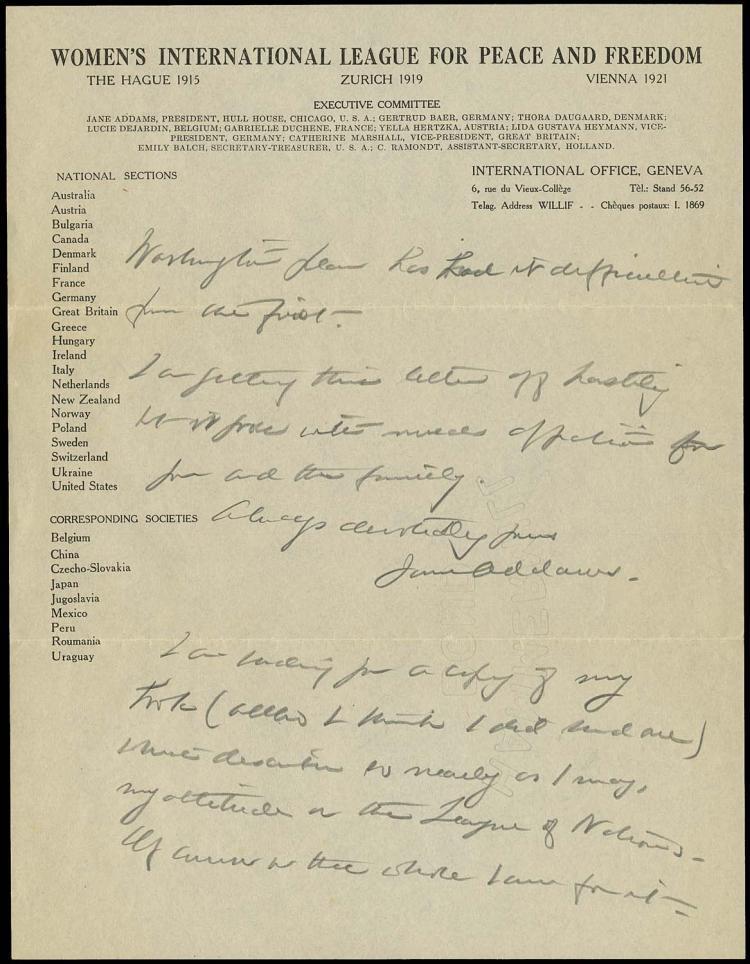 WOMEN'S INTERNATIONAL LEAGUE FOR PEACE AND FREEDOM
THE HAGUE 1915 ZURICH 1919 VIENNA 1921
EXECUTIVE COMMITTEE
JANE ADDAMS, PRESIDENT, HULL HOUSE, CHICAGO, U. S. A.; GERTRUD BAER, GERMANY; THORA DAUGAARD, DENMARK;
LUCIE DEJARDIN, BELGIUM; GABRIELLE DUCHENE, FRANCE; YELLA HERTZKA, AUSTRIA; LIDA GUSTAVA HEYMANN, VICE-
PRESIDENT, GERMANY; CATHERINE MARSHALL, VICE-PRESIDENT, GREAT BRITAIN;
EMILY BALCH, SECRETARY-TREASURER, U. S. A.; C. RAMONDT, ASSISTANT-SECRETARY, HOLLAND.
INTERNATIONAL OFFICE, GENEVA
6, rue du Vieux-Collège Tèl.: Stand 56-52
Telag. Address WILLIF - - Chèques postaux: I. 1869
NATIONAL SECTIONS
Australia
Austria
Bulgaria
Canada
Denmark
Finland
France
Germany
Great Britain
Greece
Hungary
Ireland
Italy
Netherlands
New Zealand
Norway
Poland
Sweden
Switzerland
Ukraine
United States
CORRESPONDING SOCIETIES
Belgium
China
Czecho-Slovakia
Japan
Jugoslavia
Mexico
Peru
Roumania
Uraguay
Washington plan has had its difficulties
from the first.
I am getting this letter off hastily
but it goes with much affection for
you and the family.
Always devotedly yours
Jane Addams.
I am sending you a copy of my
book (altho I think I did send one)
which describes as nearly as I may,
my attitude on the League of Nations.
Of course on the whole I am for it